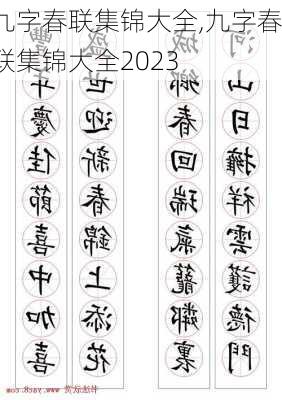 九字春联集锦大全,九字春
联集锦大全2023
河山日擁祥雲護德門
城鄉春回瑞氣籠鄰裏
盛世迎新春錦上添花
豐年慶佳節喜中加喜
书法欣赏 www.yac8.com